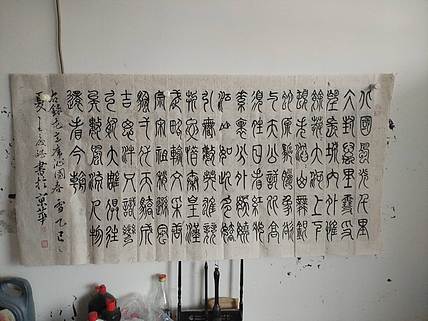 北國風光千里
冰封萬里雪飄
望長城內外惟
餘莽莽大河上下
頓失滔滔山舞銀
蛇原馳蠟象欲
與天公試比高
須晴日看紅裝
素裹分外妖嬈
江山如此多嬌
引無數英雄競
折腰惜秦皇漢
武略輸文采唐
宗宋祖稍遜風
騷一代天驕成
吉思汗只識彎
弓射大雕俱往
矣數風流人物
還看今朝
右錄毛澤東沁園春雪乙巳
夏書於京華